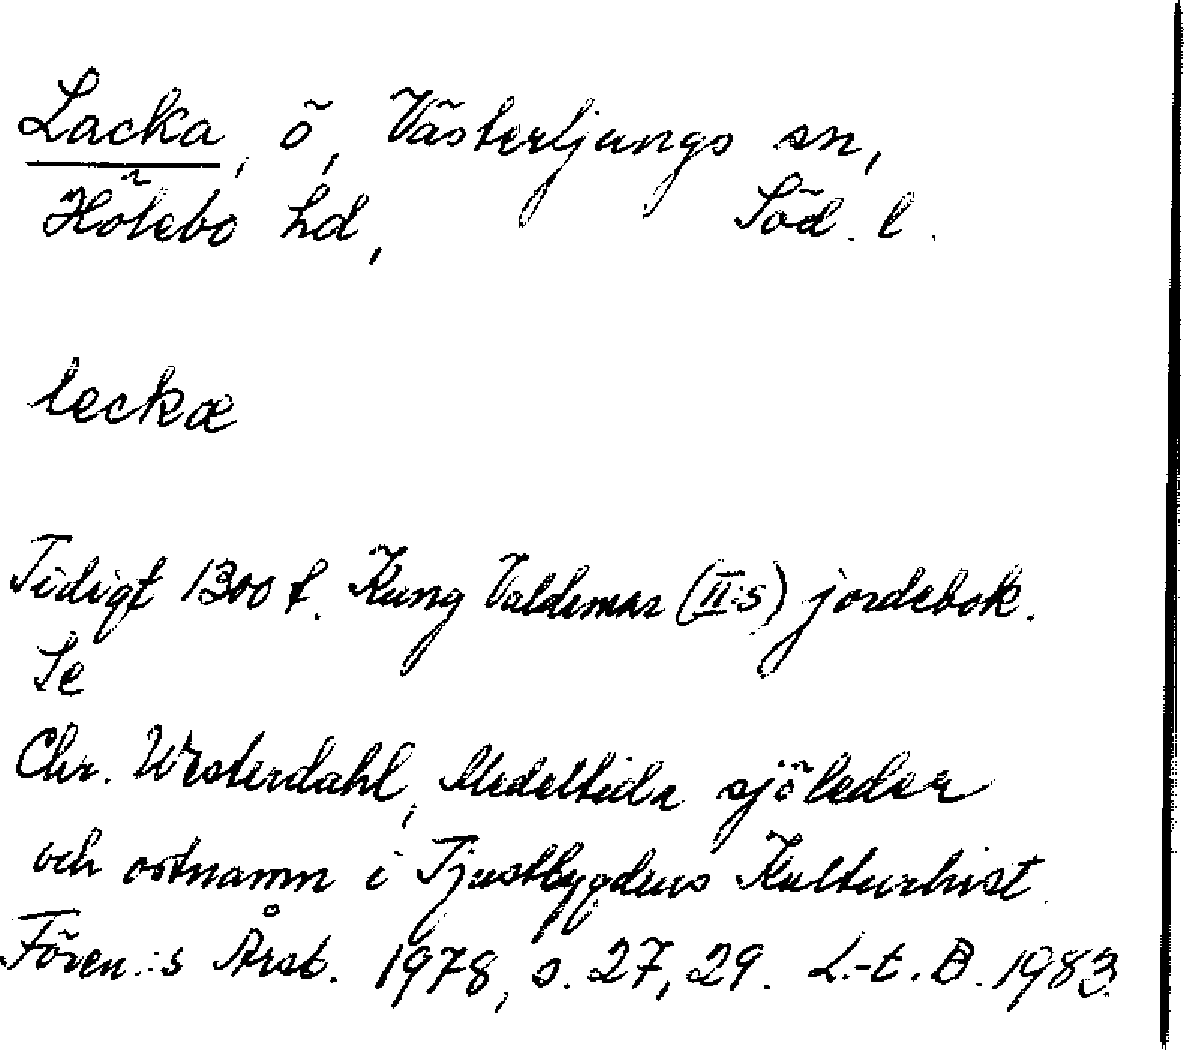 Lacka, ö, Västerljungs sn,
Hölebo hd, Söd. l.
leckæ
Tidigt 1300 t. Kung Valdemar (II:s) jordebok.
Se
Chr. Westerdahl, Medeltida sjöleder
och ortnamn i Tjustbygdens Kulturhist.
Fören.:s Årsb. 1978, s. 27, 29. L.-t. B. 1983.